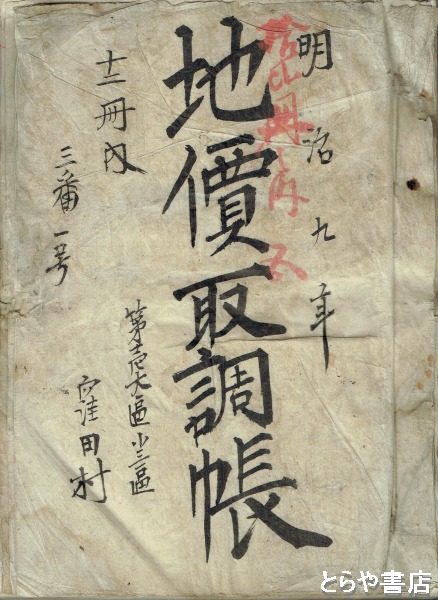 明治九年
地價取調帳
十二冊内
三番一号
第壱大區小三區
窪田村
とらや書店